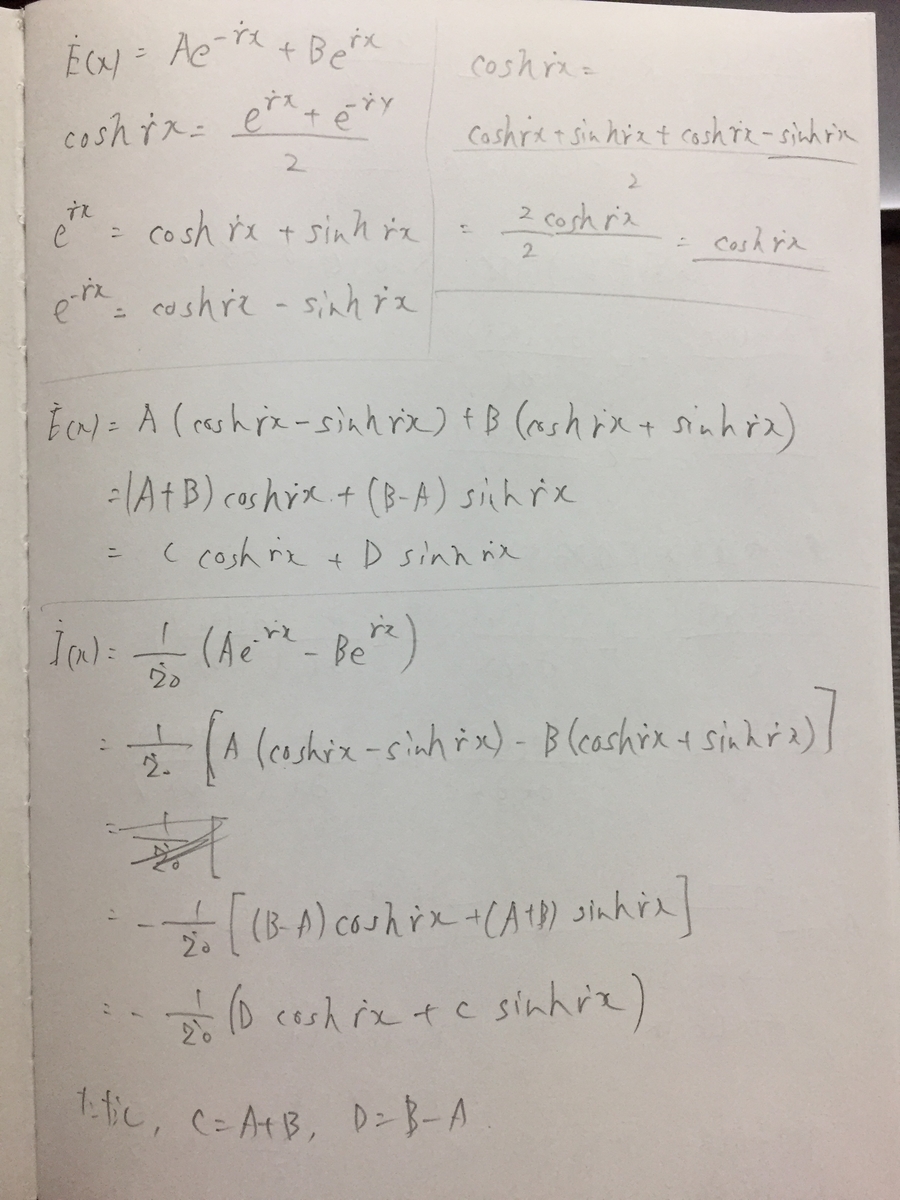 Ė(x) = Ae^{-ṙx} + Be^{ṙx}
cosh ṙx = \frac{e^{ṙx} + e^{-ṙy}}{2}
e^{ṙx} = cosh ṙx + sinh ṙx
e^{-ṙx} = cosh ṙx - sinh ṙx
cosh ṙx =
\frac{cosh ṙx + sinh ṙx + cosh ṙx - sinh ṙx}{2}
= \frac{2 cosh ṙx}{2} = cosh ṙx
Ė(x) = A (cosh ṙx - sinh ṙx) + B (cosh ṙx + sinh ṙx)
= (A+B) cosh ṙx + (B-A) sinh ṙx
= C cosh ṙx + D sinh ṙx
İ(x) = \frac{1}{Ż0} (Ae^{-ṙx} - Be^{ṙx})
= \frac{1}{Ż0} [A (cosh ṙx - sinh ṙx) - B (cosh ṙx + sinh ṙx)]
= \frac{1}{Ż0} [
= - \frac{1}{Ż0} [(B-A) cosh ṙx + (A+B) sinh ṙx]
= - \frac{1}{Ż0} (D cosh ṙx + C sinh ṙx)
ただし, C = A+B, D = B-A.